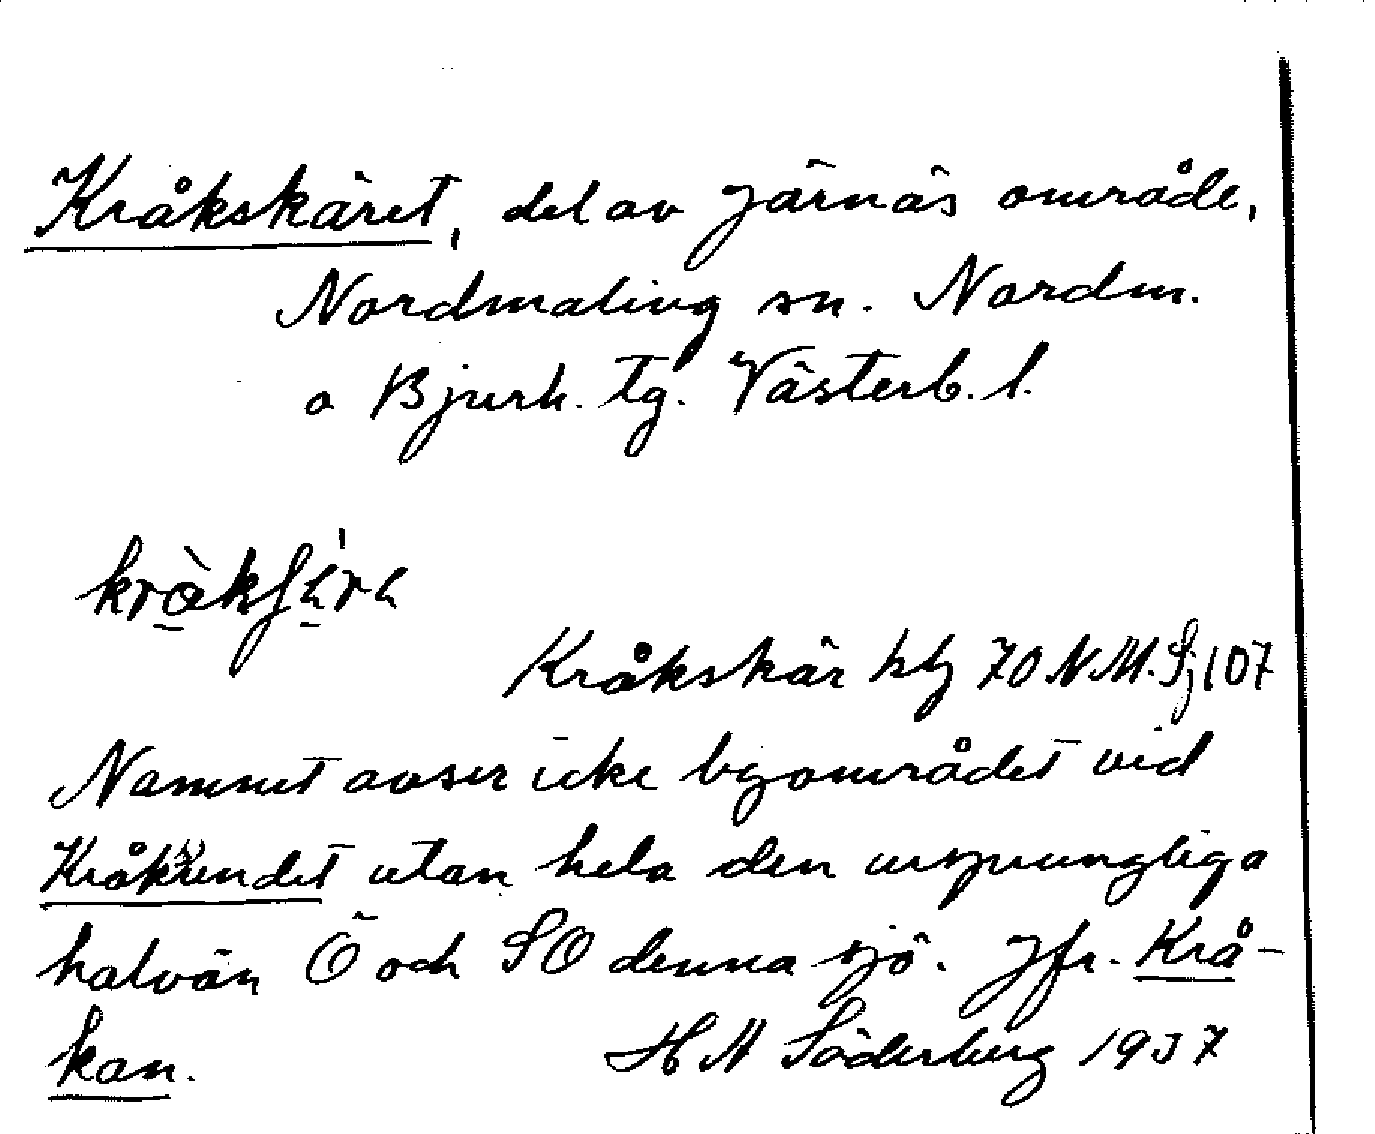 Kråkskäret, del av Järnäs område,
Nordmaling sn. Nordm.
o Bjurh. tg. Västerb. l.
Kråkskär hbl 70 N M. Sj 107
Namnet avser icke byområdet vid
Kråksundet utan hela den ursprungliga
halvön Ö och SO denna sjö. Jfr. Krå-
kan. H N Söderberg 1937